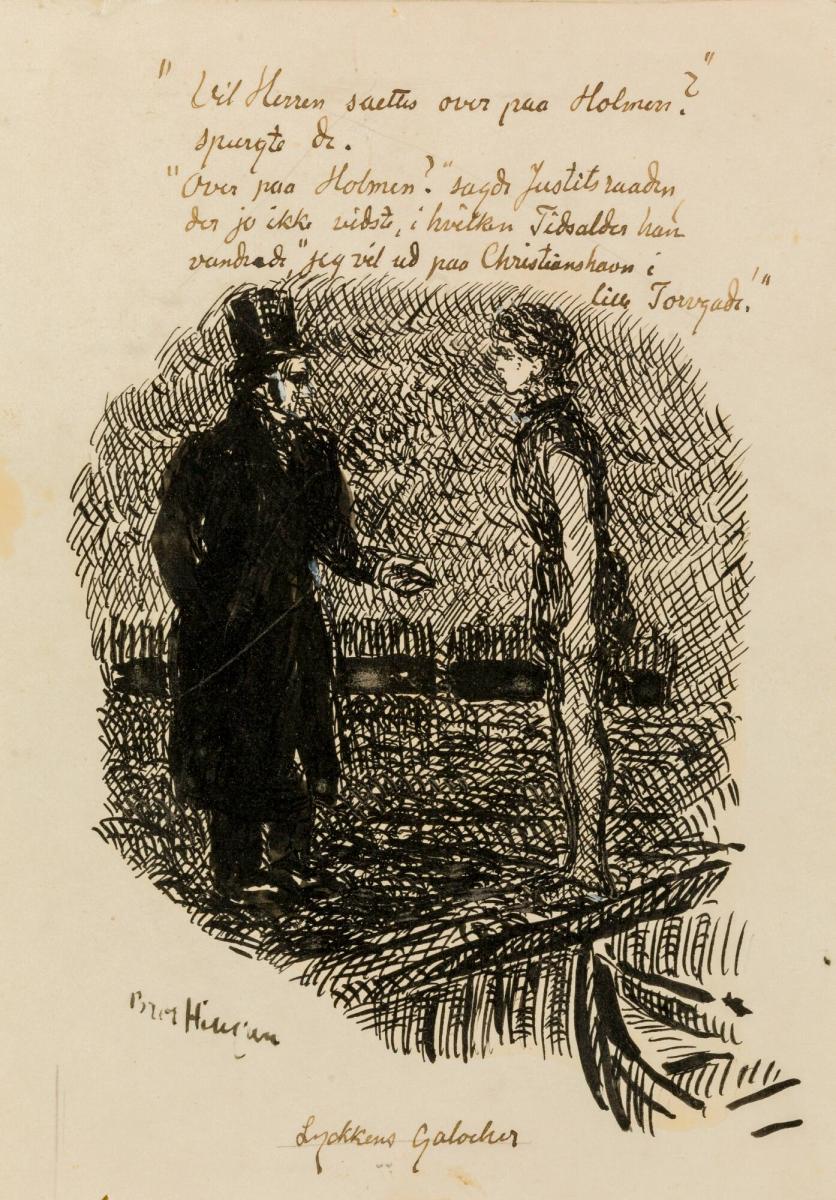 "Vil Herren saettes over paa Holmen?"
spurgte de.
"Over paa Holmen?" sagde Justitsraaden,
der jo ikke vidste, i hvilken Tidsalder han
vandrede, "jeg vil ud paa Christianshavn i
lille Torvegade!"
Bror Hil
Lyckkens Galocher